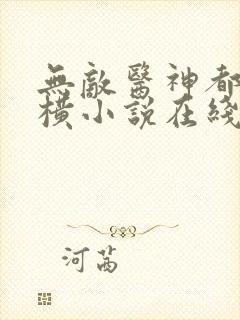 無敵醫神都
橫小説在綫
河茜